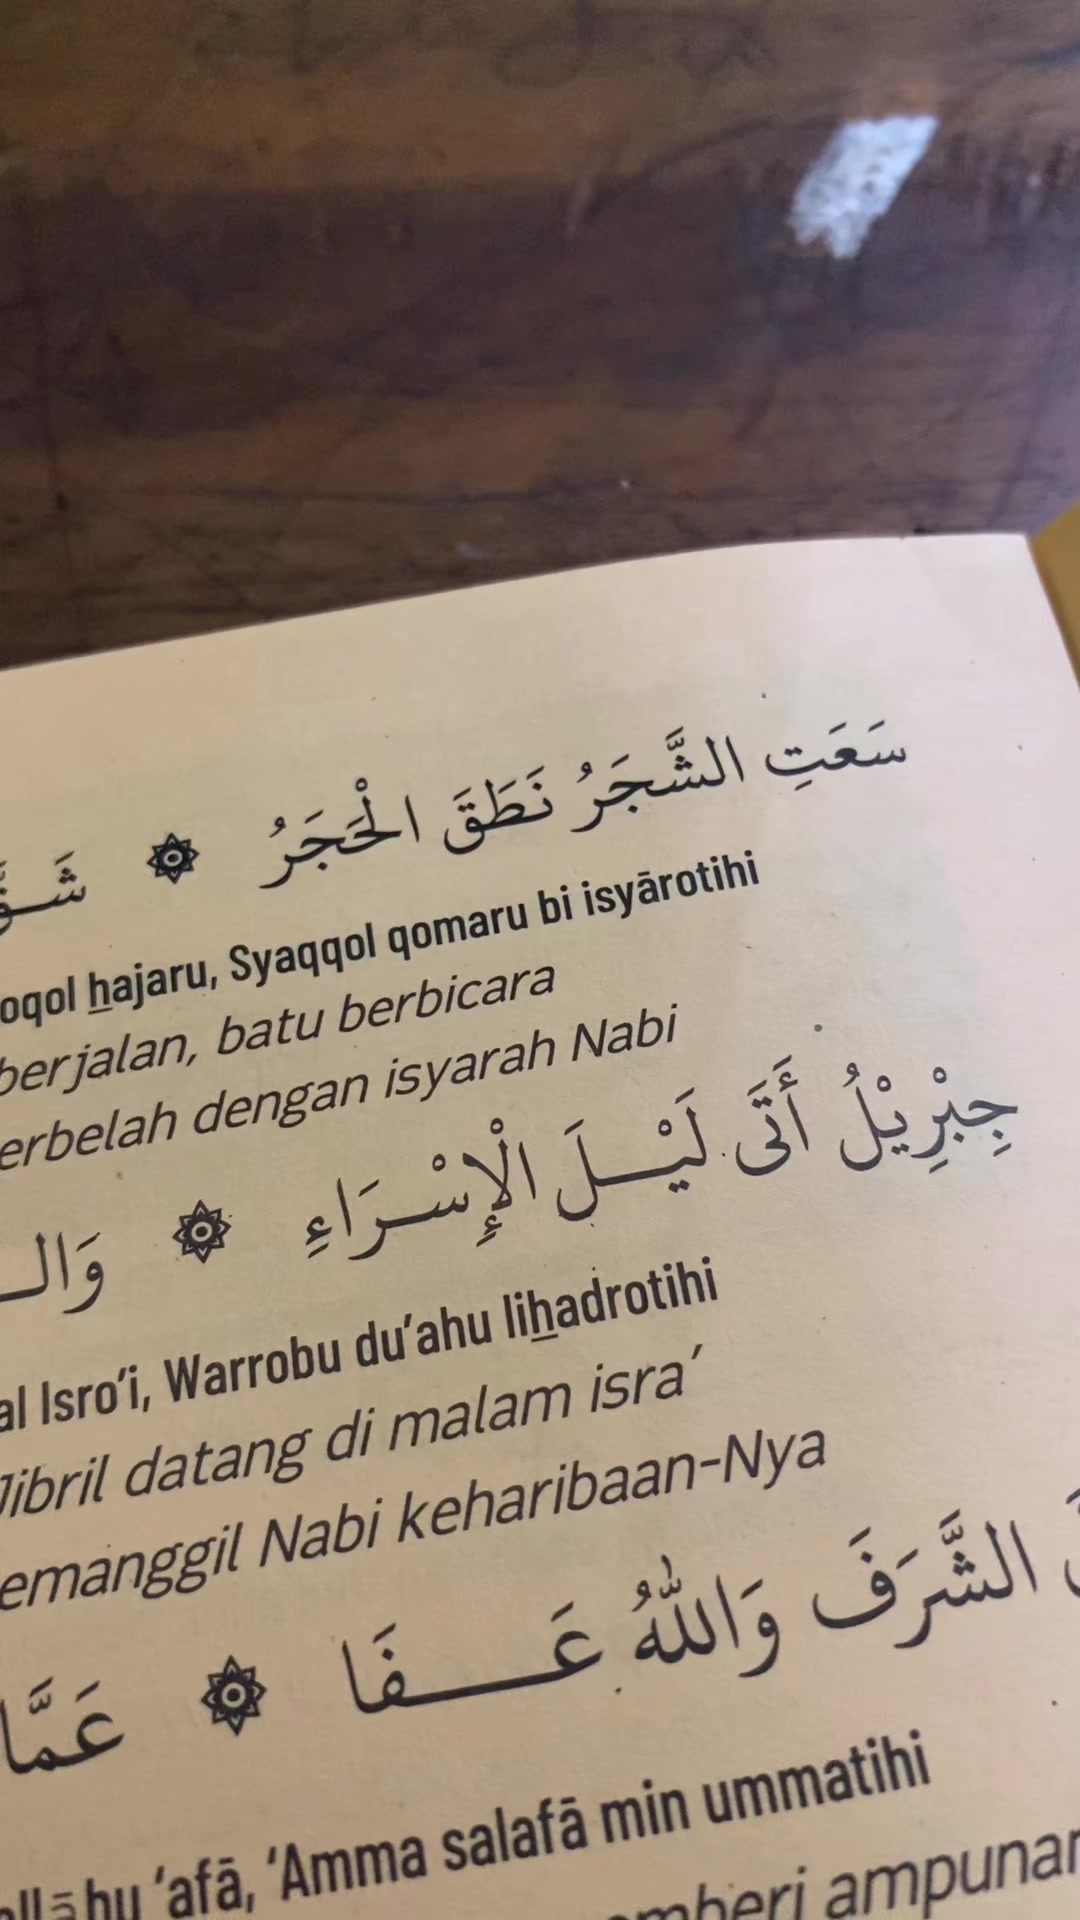 سَعَتِ الشَّجَرُ نَطَقَ الْحَجَرُ ۞ شَـقَّ
oqol hajaru, Syaqqol qomaru bi isyārotihi
berjalan, batu berbicara
erbelah dengan isyarah Nabi
جِبْرِيْلُ أَتَى لَيْـــلَ الْإِسْـرَاءِ ۞ وَالـ
al Isro'i, Warrobu du'ahu lihadrotihi
Jibril datang di malam isra'
emanggil Nabi keharibaan-Nya
الشَّرَفَ وَاللّٰهُ عَـــفَا ۞ عَمَّا
llāhu 'afā, 'Amma salafā min ummatihi
mberi ampunan